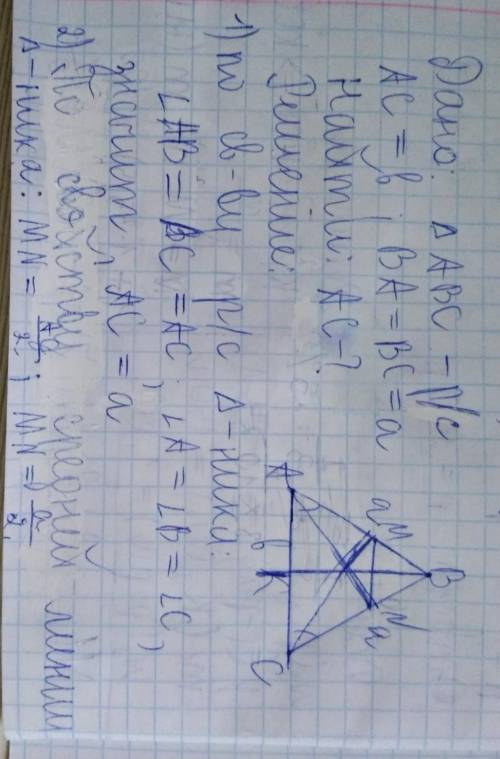 Дано: Δ ABC – р/с
AC = в; BA = BC = a
Найти: AC – ?
Решение:
1) по св-ву р/с Δ-ника:
∠AB = BC = AC; ∠A = ∠B = ∠C,
значит, AC = a
2) По свойству средней линии
Δ-ника: MN = ; MN = a/2.
B
M
N
a
a
A
в
K
C